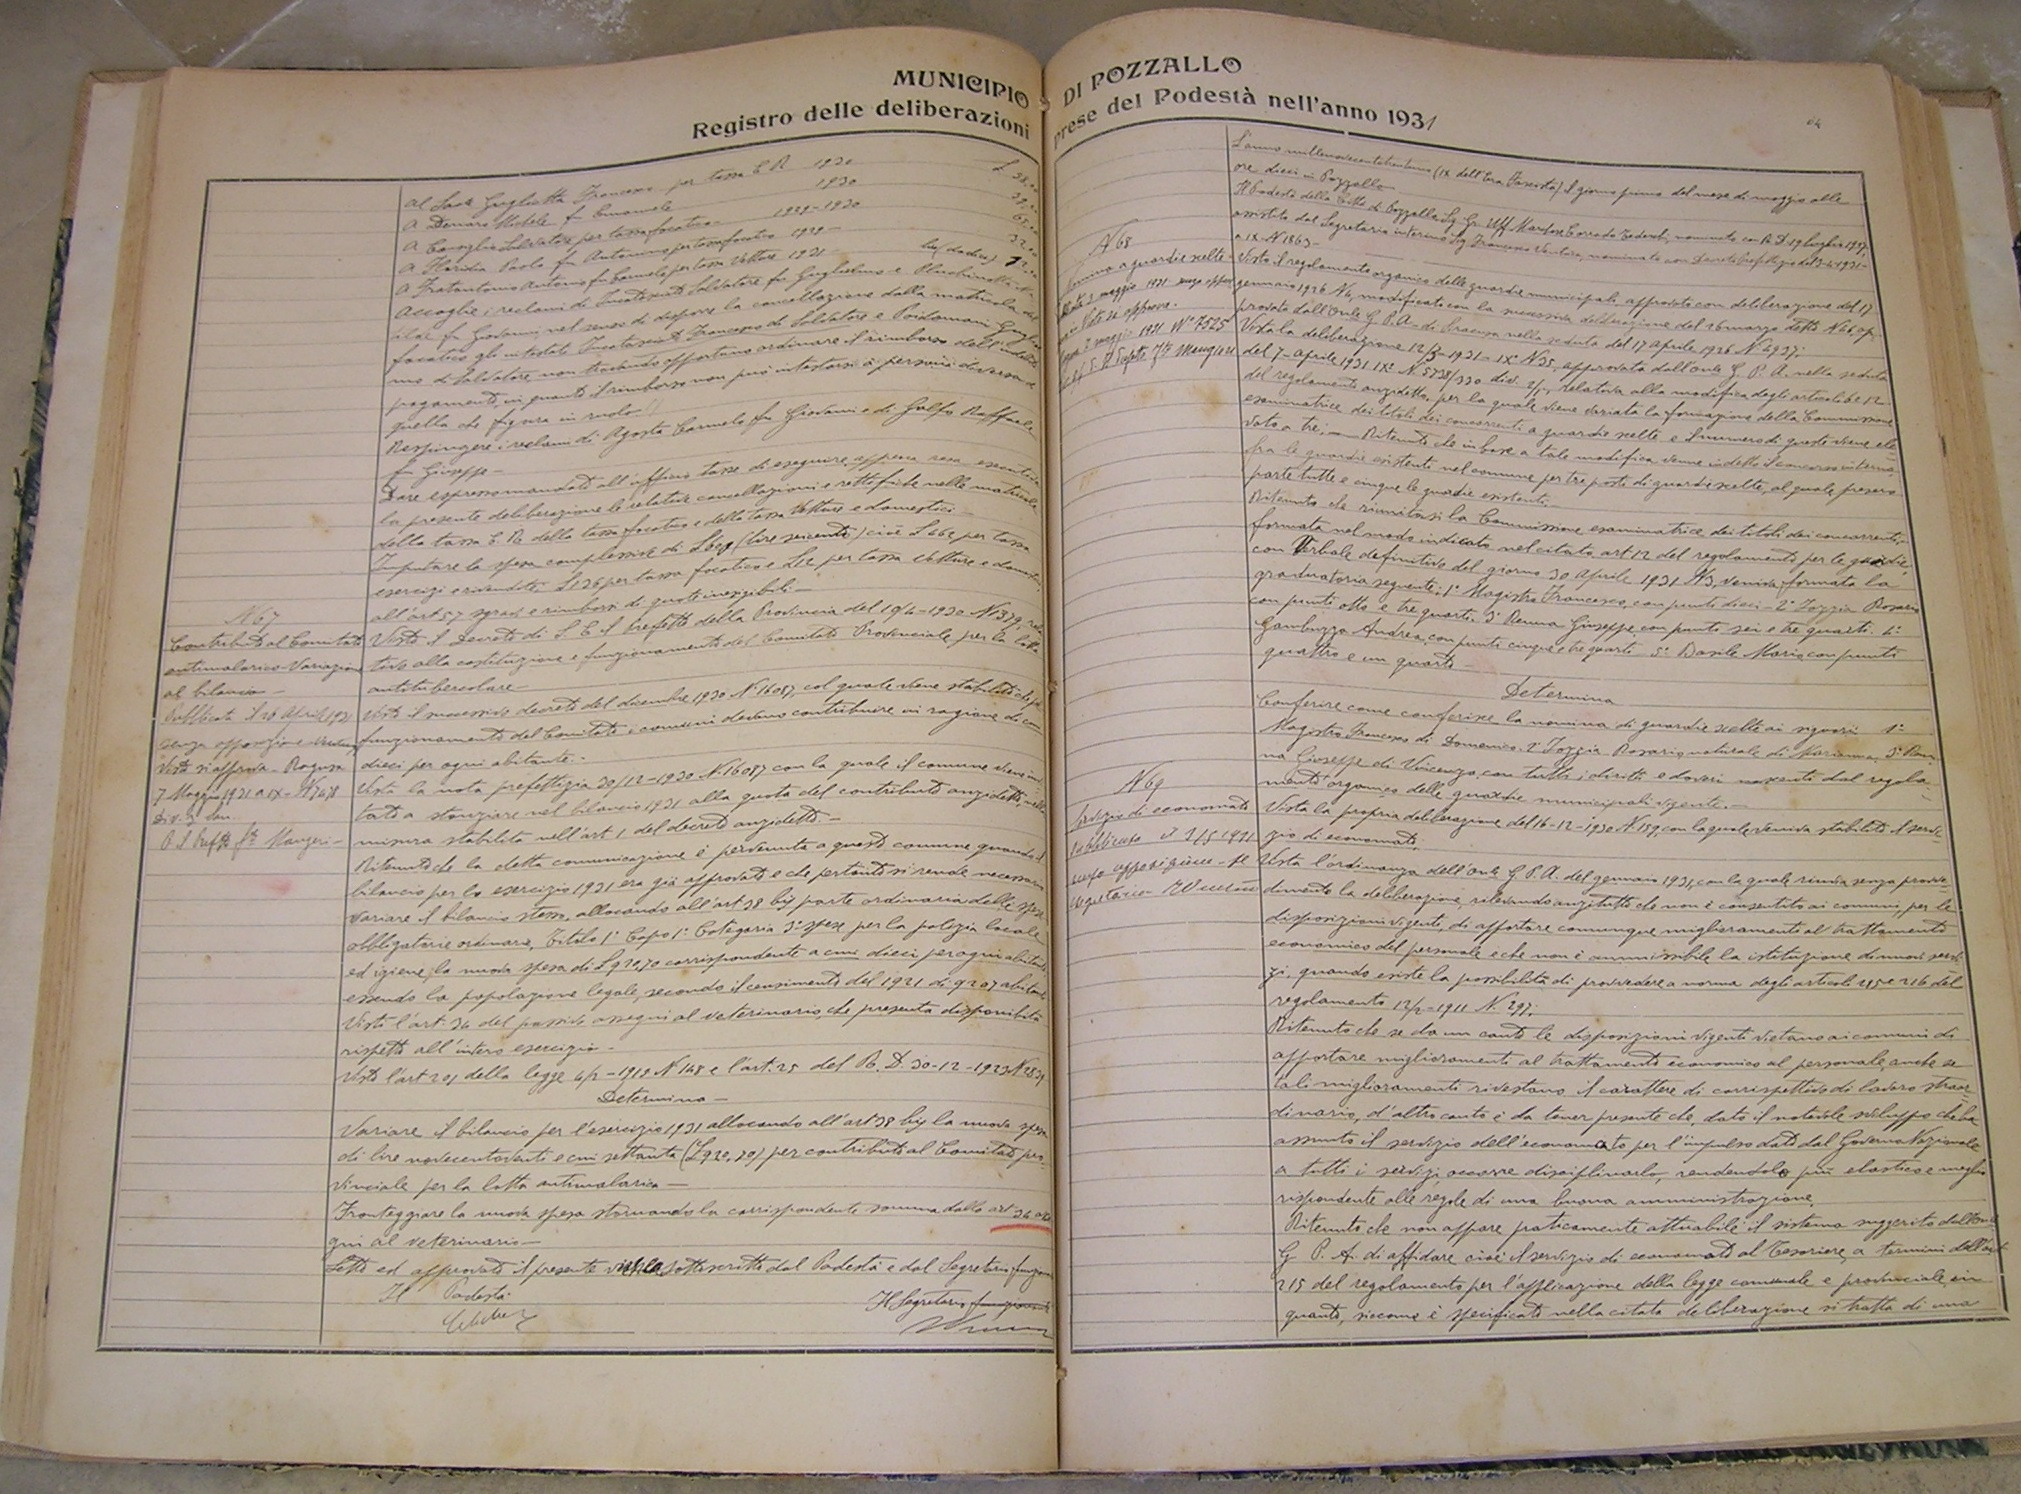 MUNICIPIO DI POZZALLO
Registro delle deliberazioni prese del Podestà nell'anno 1931
per tassa E R 1930
A Michele fu Emanuele 1930
A Salvatore per tassa focatico 1929-1930
A Paolo fu Antonino per tassa focatico 1929
A Antonio fu Carmelo per tassa Vetture 1931 lire (dodici) 12
Accoglie i reclami di Salvatore fu Guglielmo e
fu Giovanni nel senso di disporre la cancellazione dalla matricola del
focatico gli intestati Francesco di Salvatore e
mo di Salvatore, non trovando opportuno ordinare il rimborso dell'indebito
pagamento, in quanto il rimborso non può intestarsi a persona diversa da
quella che figura in ruolo
Respingere i reclami di Agosta Carmelo fu Giovanni e di Raffaele
fu Giuseppe
Dare espresso mandato all'ufficio tasse di eseguire, appena resa esecutiva
la presente deliberazione le relative cancellazioni e rettifiche nelle matricole
della tassa E. R. della tassa focatico e della tassa Vetture e domestici
Imputare la spesa complessiva di (lire seicento) cioè per tassa
esercizi e rivendite, L 126 per tassa focatico e L 12 per tassa Vetture e domestici
all'art 57 sgravi e rimborsi di quote inesigibili
N 67
Contributo al Comitato
antimalarico - Variazione
al bilancio -
Pubblicata il 26 Aprile 1931
senza opposizione
Vista si approva - Ragusa
7 Maggio 1931 a IX - N 7478
Div. 2
p. Il Prefetto fto Mangeri -
Visto il Decreto di S. E. il Prefetto della Provincia del 19/4-1930 N 1379, rela
tivo alla costituzione e funzionamento del Comitato Provinciale per la lotta
antitubercolare
Visto il successivo decreto del dicembre 1930 N 16087, col quale viene stabilito che pel
funzionamento del Comitato i comuni devono contribuire in ragione di cmi
dieci per ogni abitante.
Vista la nota prefettizia 30/12-1930 N. 16087 con la quale il comune viene invi
tato a stanziare nel bilancio 1931 alla quota del contributo anzidetto, nella
misura stabilita nell'art 1 del decreto anzidetto. -
Ritenuto che la detta comunicazione è pervenuta a questo comune quando il
bilancio per lo esercizio 1931 era già approvato e che pertanto si rende necessario
variare il bilancio stesso, allocando all'art 38 bis parte ordinaria delle spese
obbligatorie ordinarie, Titolo 1° Capo 1° Categoria 3° spese per la polizia locale
ed igiene, la nuova spesa di L 920,70 corrispondente a cmi dieci per ogni abitante
essendo la popolazione legale, secondo il censimento del 1921 di 9207 abitanti
Visto l'art. 34 del passivo assegni al veterinario, che presenta disponibilità
rispetto all'intero esercizio -
Visto l'art 201 della legge 4/2-1915 N 148 e l'art. 25 del R. D. 30-12-1923 N 2839
Determina -
Variare il bilancio per l'esercizio 1931 allocando all'art 38 bis la nuova spesa
di lire novecentoventi e cmi settanta (L 920,70) per contributo al Comitato pro
vinciale per la lotta antimalarica -
Fronteggiare la nuova spesa stornando la corrispondente somma dallo art 34 asse
gni al veterinario -
Letto ed approvato il presente viene sottoscritto dal Podestà e dal Segretario
Il Podestà
Il Segretario
L'anno millenovecentotrentuno (IX dell'Era Fascista) il giorno primo del mese di maggio alle
ore dieci in Pozzallo
Il Podestà della Città di Pozzallo Sig. Gr. Uff. Corrado Tedeschi, nominato con R. D. 19 luglio 1927,
assistito dal Segretario interino Sig. Francesco Ventura, nominato con Decreto Prefettizio del 3-4-1931-
a IX - N 1863 -
N 68
Nomina a guardie scelte
maggio 1931 senza opposi
Vista si approva.
maggio 1931 N° 7525
Visto il regolamento organico delle guardie municipali, approvato con deliberazione del 17
gennaio 1926 N 4, modificato con la successiva deliberazione del 26 marzo detto N 46, ap
provato dall'Onle G. P. A. di Siracusa nella seduta del 17 Aprile 1926 N 4937;
Vista la deliberazione 12/3-1931-IX° N 35, approvata dall'onle G. P. A. nella seduta
del 7 - Aprile 1931 IX° N. 5738/330 div. 2/1, relativa alla modifica degli articoli 6 e 12
del regolamento anzidetto, per la quale viene variata la formazione della Commissione
esaminatrice dei titoli dei concorrenti a guardie scelte e il numero di queste viene ele
vato a tre; - Ritenuto che in base a tale modifica venne indetto il concorso interno
fra le guardie esistenti nel comune per tre posti di guardie scelte, al quale presero
parte tutte e cinque le guardie esistenti. -
Ritenuto che riunitasi la Commissione esaminatrice dei titoli dei concorrenti,
formata nel modo indicato nel citato art 12 del regolamento per le guardie
con Verbale definitivo del giorno 30 Aprile 1931 N 3, veniva formata la
graduatoria seguente: 1° Magistro Francesco, con punti dieci - 2° Iozzia Rosario
con punti otto e tre quarti. 3° Renna Giuseppe con punti sei e tre quarti. 4°
Gambuzza Andrea, con punti cinque e tre quarti - 5° Basile Mario, con punti
quattro e un quarto -
Determina
Conferire come conferisce la nomina di guardie scelte ai signori 1°
Magistro Francesco di Domenico. 2° Iozzia Rosario, naturale di Marianna, 3° Ren
na Giuseppe di Vincenzo, con tutti i diritti e doveri nascenti dal regola
mento organico delle guardie municipali vigente. -
N 69
Servizio di economato
Pubblicata il 3/5 1931
senza opposizione - Il
Segretario
Vista la propria deliberazione del 16-12-1930 N 159, con la quale veniva stabilito il servi
zio di economato,
Vista l'ordinanza dell'Onle G. P. A. del gennaio 1931, con la quale rinvia senza provve
dimento la deliberazione, rilevando anzitutto che non è consentito ai comuni, per le
disposizioni vigenti, di apportare comunque miglioramenti al trattamento
economico del personale e che non è ammissibile la istituzione di nuovi servi
zi, quando esiste la possibilità di provvedere a norma degli articoli 215 e 216 del
regolamento 12/2-1911 N. 297;
Ritenuto che se da un canto le disposizioni vigenti vietano ai comuni di
apportare miglioramenti al trattamento economico al personale, anche se
tali miglioramenti rivestano il carattere di corrispettivo di lavoro straor
dinario, d'altro canto è da tener presente che, dato il notevole sviluppo che ha
assunto il servizio dell'economato per l'impulso dato dal Governo Nazionale
a tutti i servizi, occorre disciplinarlo, rendendolo più elastico e meglio
rispondente alle regole di una buona amministrazione.
Ritenuto che non appare praticamente attuabile il sistema suggerito dall'Onle
G. P. A. di affidare cioè il servizio di economato al Tesoriere, a termini dell'art
215 del regolamento per l'applicazione della legge comunale e provinciale, in
quanto, siccome è specificato nella citata deliberazione si tratta di una